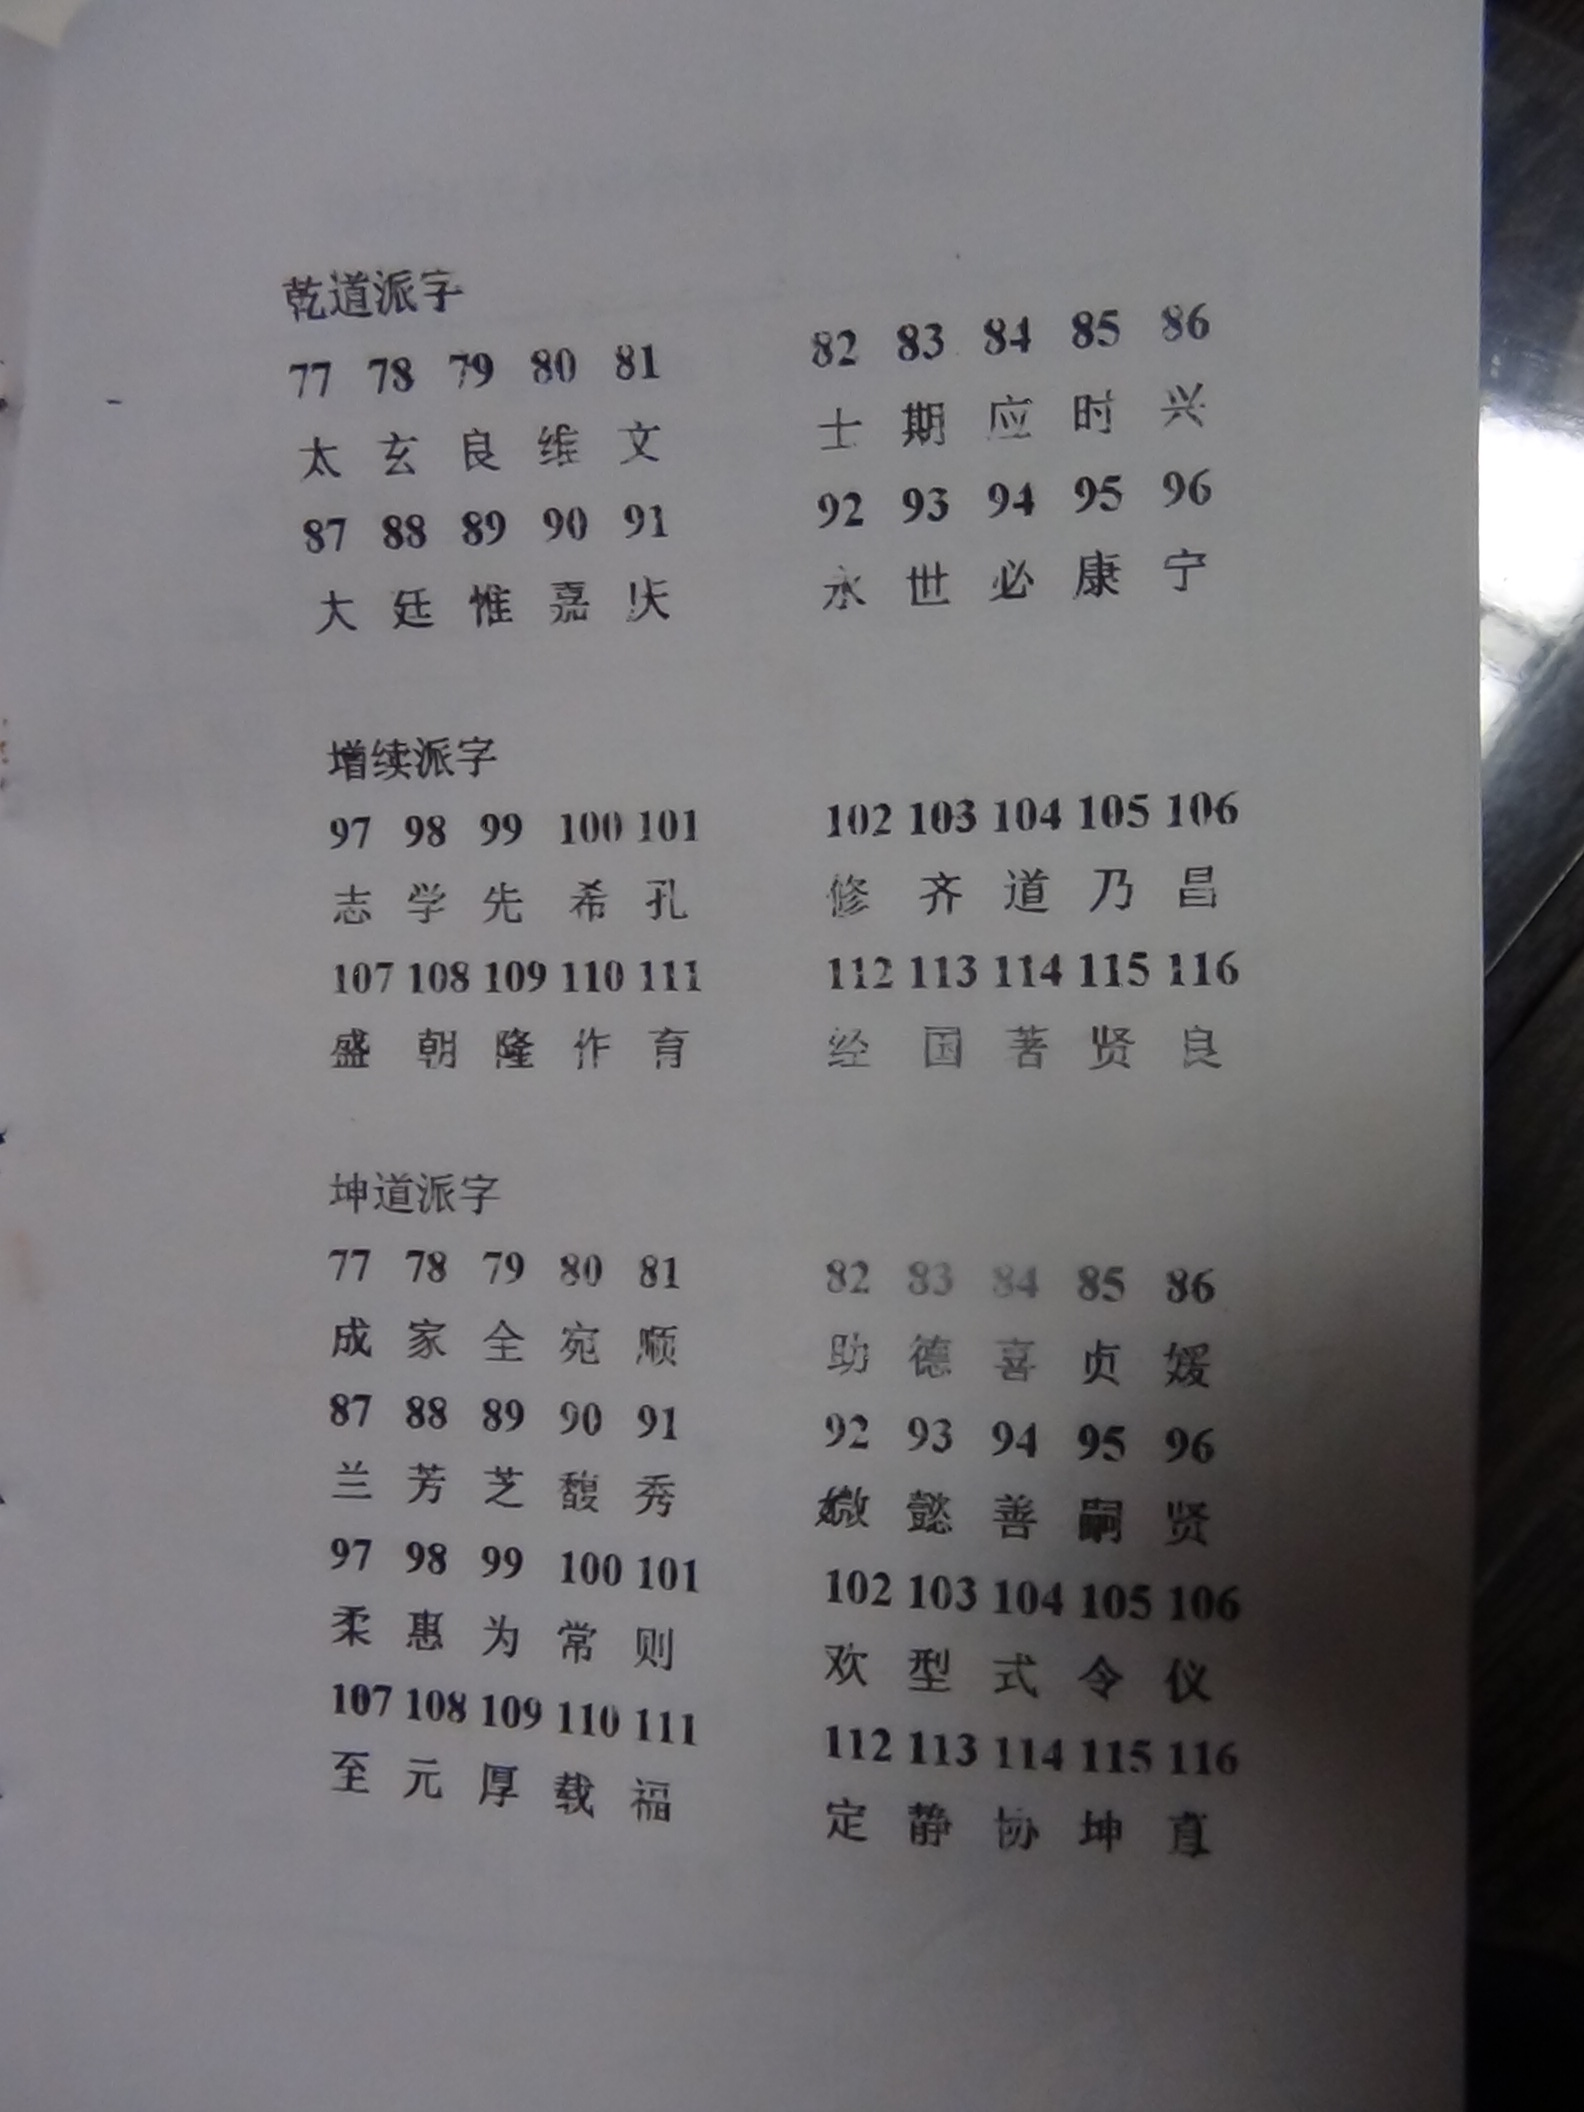 乾道派字
77 78 79 80 81 82 83 84 85 86
太 玄 良 维 文 士 期 应 时 兴
87 88 89 90 91 92 93 94 95 96
大 廷 惟 嘉 庆 永 世 必 康 宁
增续派字
97 98 99 100 101 102 103 104 105 106
志 学 先 希 孔 修 齐 道 乃 昌
107 108 109 110 111 112 113 114 115 116
盛 朝 隆 作 育 经 国 著 贤 良
坤道派字
77 78 79 80 81 82 83 84 85 86
成 家 全 宛 顺 助 德 喜 贞 媛
87 88 89 90 91 92 93 94 95 96
兰 芳 芝 馥 秀 懿 善 嗣 贤
97 98 99 100 101 102 103 104 105 106
柔 惠 为 常 则 欢 型 式 令 仪
107 108 109 110 111 112 113 114 115 116
至 元 厚 载 福 定 静 协 坤 直